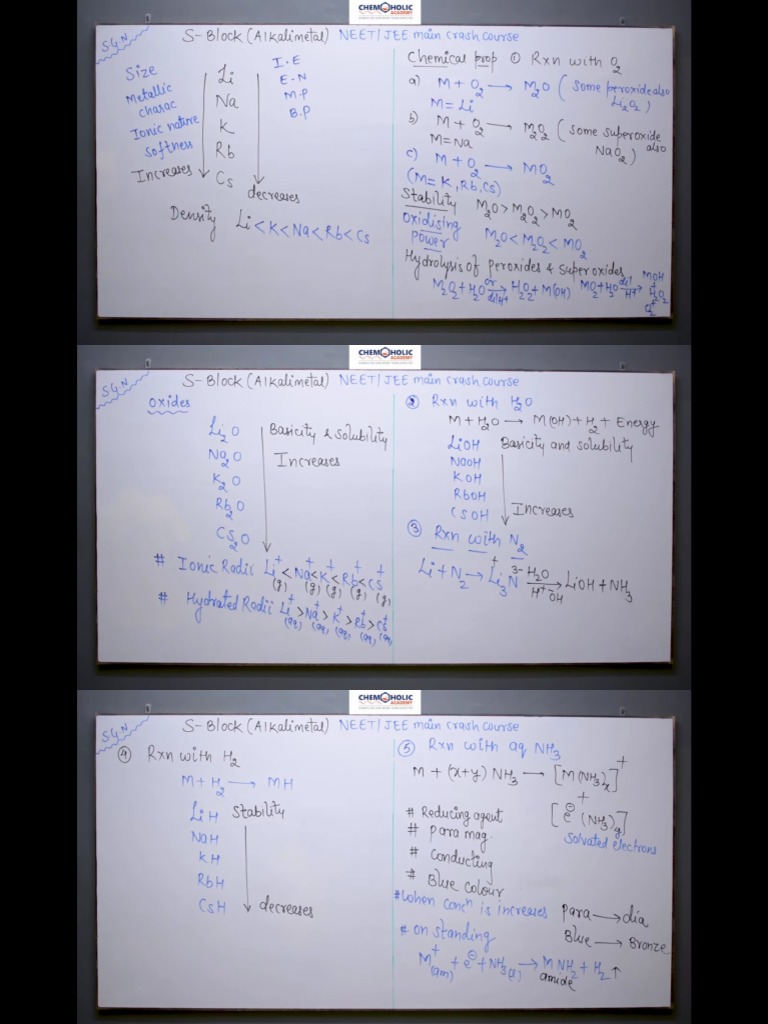 CHEMOHOLIC
ACADEMY
S.G.N
S-Block (Alkalimetal) NEET/JEE main crash course
Size
Metallic
charac
Ionic nature
Softness
Increases
Li
Na
K
Rb
Cs
I.E
E.N
M.P
B.P
decreases
Density Li < K < Na < Rb < Cs
Chemical prop ① Rxn with O₂
a) M + O₂ → M₂O ( Some peroxide also
Li₂O₂ )
M = Li
b) M + O₂ → M₂O₂ ( Some superoxide
also
M = Na NaO₂ )
c) M + O₂ → MO₂
(M = K, Rb, Cs)
Stability M₂O > M₂O₂ > MO₂
Oxidising
Power M₂O < M₂O₂ < MO₂
Hydrolysis of peroxides & Superoxides
M₂O₂ + H₂O → H₂O₂ + M(OH) MO₂ + H₂O → MOH
+
H₂O₂
+
O₂
CHEMOHOLIC
ACADEMY
S.G.N
S-Block (Alkalimetal) NEET/JEE main crash course
Oxides
Li₂O
Na₂O
K₂O
Rb₂O
Cs₂O
Basicity & Solubility
Increases
# Ionic Radii Li⁺ < Na⁺ < K⁺ < Rb⁺ < Cs⁺
(g) (g) (g) (g) (g)
# Hydrated Radii Li⁺ > Na⁺ > K⁺ > Rb⁺ > Cs⁺
(aq) (aq) (aq) (aq) (aq)
② Rxn with H₂O
M + H₂O → M(OH) + H₂ + Energy
LiOH
NaOH
KOH
RbOH
CsOH
Basicity and solubility
Increases
③ Rxn with N₂
Li + N₂ → Li₃⁺N³⁻ H₂O → LiOH + NH₃
H⁺ ⁻OH
CHEMOHOLIC
ACADEMY
S.G.N
S-Block (Alkalimetal) NEET/JEE main crash course
④ Rxn with H₂
M + H₂ → MH
LiH
NaH
KH
RbH
CsH
Stability
decreases
⑤ Rxn with aq NH₃
M + (x+y) NH₃ → [M(NH₃)x]⁺
+
[e⊖(NH₃)y]
Solvated electrons
# Reducing agent
# Para mag.
# Conducting
# Blue colour
# When concⁿ is increases Para → dia
Blue → Bronze
# on standing
M⁺(am) + e⊖ + NH₃(l) → MNH₂ + H₂↑
amide